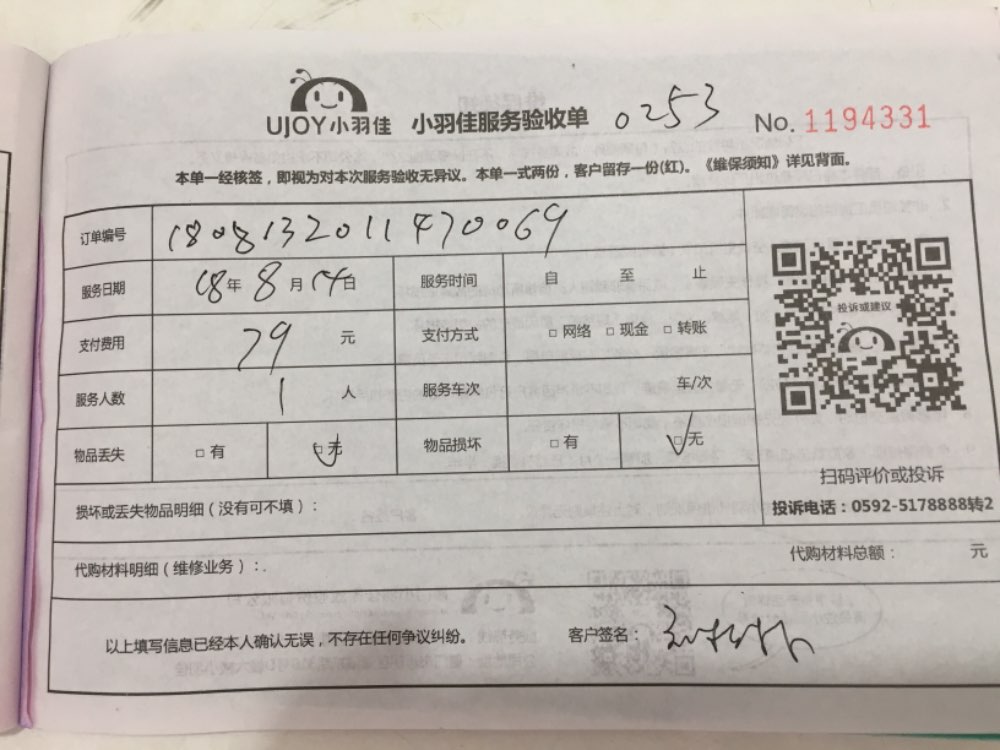 UJOY小羽佳 小羽佳服务验收单 0253 No. 1194331
本单一经核签，即视为对本次服务验收无异议。本单一式两份，客户留存一份(红)。《维保须知》详见背面。
订单编号 180813201147 0069
服务日期 18年8月14日 服务时间 自 至 止
支付费用 79 元 支付方式 □网络 □现金 □转账
服务人数 1 人 服务车次 车/次
物品丢失 □有 □无 物品损坏 □有 □无
投诉或建议
扫码评价或投诉
投诉电话：0592-5178888转2
损坏或丢失物品明细（没有可不填）：
代购材料明细（维修业务）：
代购材料总额： 元
以上填写信息已经本人确认无误，不存在任何争议纠纷。 客户签名：